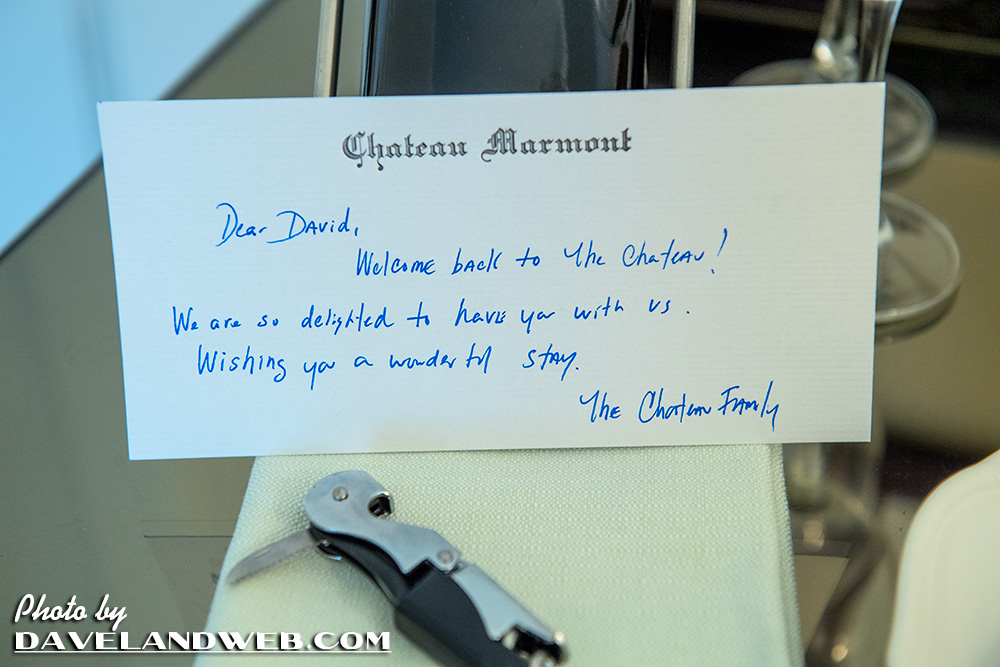 Chateau Marmont
Dear David,
Welcome back to The Chateau!
We are so delighted to have you with us.
Wishing you a wonderful stay.
The Chateau Family
Photo by
DAVELANDWEB.COM